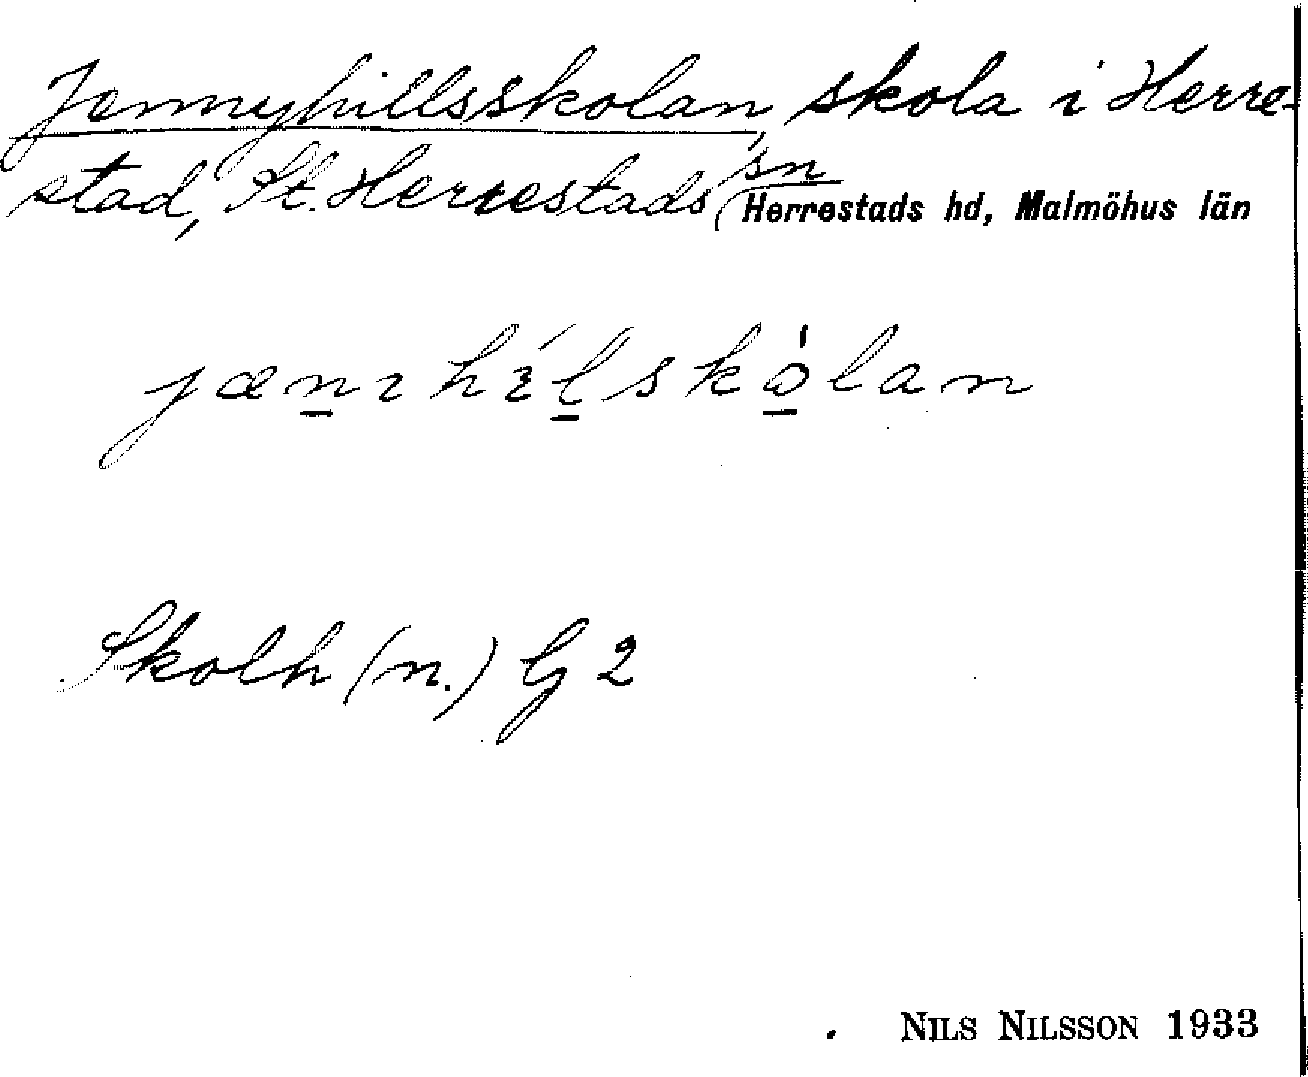 Jennyhillsskolan, skola i Herre-
stad, St. Herrestads sn
Herrestads hd, Malmöhus län
jænıhílskǫ̀lan
Skolh (n.) G 2
NILS NILSSON 1933